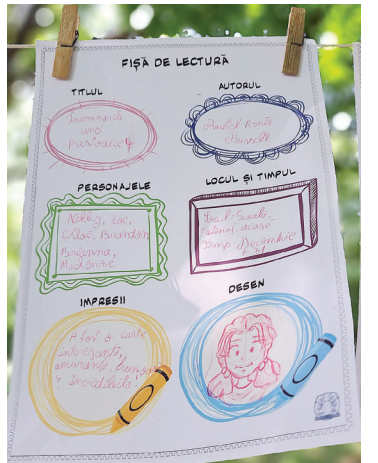 FIȘĂ DE LECTURĂ
TITLUL
Însemnările
unei
puștoaice 4
AUTORUL
Rachel Renée
Russell
PERSONAJELE
Nikki, Zoe,
Chloe, Brandon,
Brianna,
Mackenzie
LOCUL ȘI TIMPUL
Locul: Școală,
Patinoar, acasă
Timp: Decembrie
IMPRESII
A fost o carte
interesantă,
amuzantă, frumoasă
și incredibilă!
DESEN